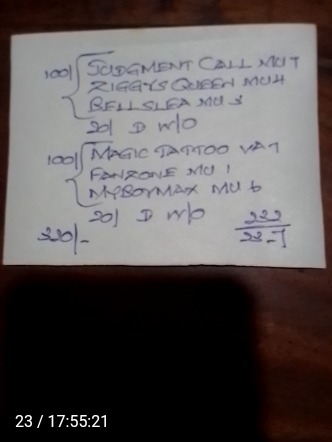 100/ JUDGMENT CALL MU 7
ZIGGYS QUEEN MU 4
BELLSLEA MU 3
20/ D W/O
100/ MAGIC TATTOO VA 1
FANZONE MU 1
MYBOYMAX MU 6
20/ D W/O
220/- 222
22-7
23 / 17:55:21